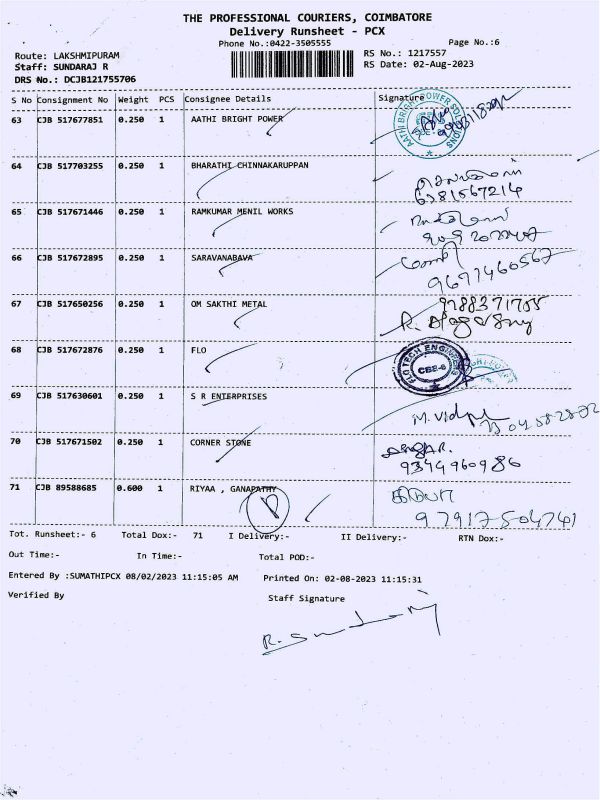 THE PROFESSIONAL COURIERS, COIMBATORE
Delivery Runsheet - PCX
Phone No.:0422-3505555
Page No.:6
Route: LAKSHMIPURAM
RS No.: 1217557
Staff: SUNDARAJ R
RS Date: 02-Aug-2023
DRS No.: DCJB121755706
S No Consignment No Weight PCS Consignee Details Signature
63 CJB 517677851 0.250 1 AATHI BRIGHT POWER
AATHI BRIGHT POWER SOLUTIONS
64 CJB 517703255 0.250 1 BHARATHI CHINNAKARUPPAN
6381567214
65 CJB 517671446 0.250 1 RAMKUMAR MENIL WORKS
66 CJB 517672895 0.250 1 SARAVANABAVA
9677460567
67 CJB 517650256 0.250 1 OM SAKTHI METAL
9788371755
68 CJB 517672876 0.250 1 FLO
FLOTECH ENGINEERS
CBE-6
69 CJB 517630601 0.250 1 S R ENTERPRISES
70 CJB 517671502 0.250 1 CORNER STONE
9344960986
71 CJB 89588685 0.600 1 RIYAA , GANAPATHY
P
9 7917504741
Tot. Runsheet:- 6 Total Dox:- 71 I Delivery:- II Delivery:- RTN Dox:-
Out Time:- In Time:- Total POD:-
Entered By :SUMATHIPCX 08/02/2023 11:15:05 AM Printed On: 02-08-2023 11:15:31
Verified By Staff Signature